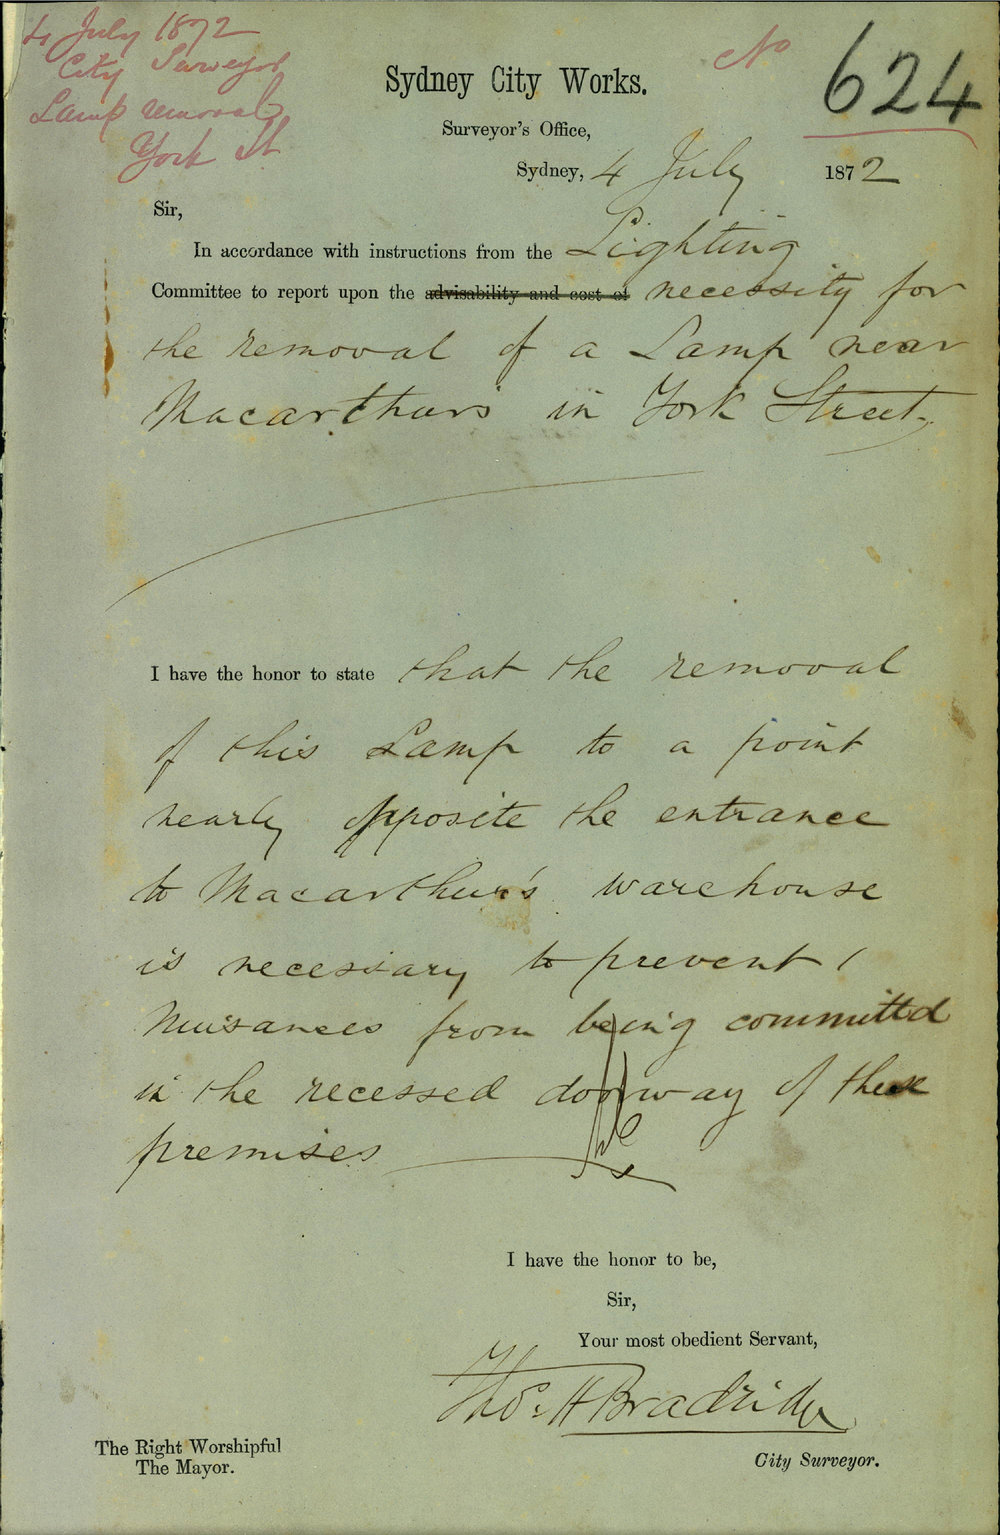 4 July 1872
City Surveyor
Lamp removal
York St
No 624
Sydney City Works.
Surveyor's Office,
Sydney, 4 July 1872
Sir,
In accordance with instructions from the Lighting
Committee to report upon the advisability and cost of necessity for
the removal of a Lamp near
Macarthurs in York Street.
I have the honor to state that the removal
of this Lamp to a point
nearly opposite the entrance
to Macarthur's warehouse
is necessary to prevent
nuisances from being committed
in the recessed doorway of these
premises
I have the honor to be,
Sir,
Your most obedient Servant,
Thos. H Bradridge
City Surveyor.
The Right Worshipful
The Mayor.